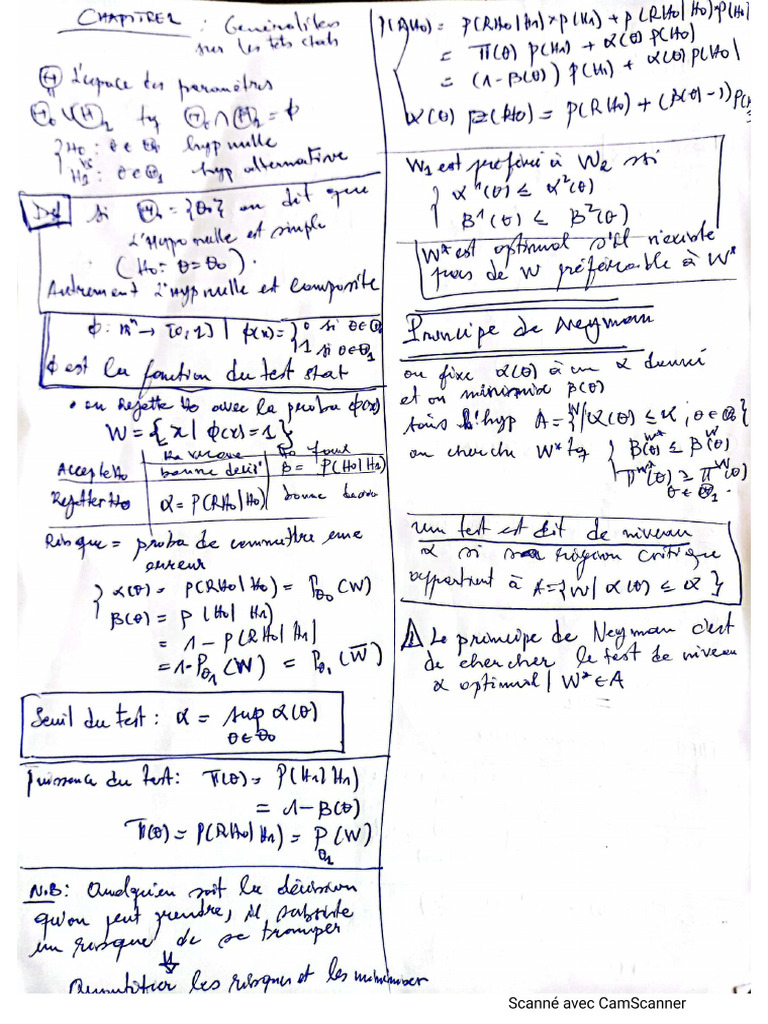 CHAPITRE1 : Généralités
sur les tests stats
Ⓗ L'espace des paramètres
Ⓗ₀ ∪ Ⓗ₁ tq Ⓗ₀ ∩ Ⓗ₁ = ϕ
{ H₀ : θ ∈ Ⓗ₀ hyp nulle
vs
H₁ : θ ∈ Ⓗ₁ hyp alternative
Def si Ⓗ₀ = {θ₀} on dit que
L'Hypo nulle est simple
(H₀ = θ = θ₀).
Autrement L'Hyp nulle est composite
ϕ : ℝⁿ → [0,1] | ϕ(x) = { 0 si θ ∈ Ⓗ₀
1 si θ ∈ Ⓗ₁
ϕ est la fonction du test stat
• on Rejette H₀ avec la proba ϕ(x)
W = { x | ϕ(x) = 1 }
H₀ vraie H₀ fausse
Accepte H₀ bonne décis° β = P(H₀ | H₁)
Rejetter H₀ α = P(RH₀ | H₀) bonne
Risque = proba de commettre une
erreur
{ α(θ) = P(RH₀ | H₀) = P_θ₀ (W)
β(θ) = P(H₀ | H₁)
= 1 - P(RH₀ | H₁)
= 1 - P_θ₁ (W) = P_θ₁ (W̅)
Seuil du test : α = sup α(θ)
θ ∈ Θ₀
Puissance du test : π(θ) = P(H₁ | H₁)
= 1 - β(θ)
π(θ) = P(RH₀ | H₁) = P_θ₁ (W)
N.B : Quelqu'en soit la décision
qu'on peut prendre, il subsiste
un risque de se tromper
⇓
Quantifier les risques et les minimiser
P(RH₀) = P(RH₀ | H₁) × P(H₁) + P(RH₀ | H₀) × P(H₀)
= π(θ) P(H₁) + α(θ) P(H₀)
= (1 - β(θ)) P(H₁) + α(θ) P(H₀)
α(θ) P(H₀) = P(RH₀) + (β(θ) - 1) P(H₁)
W₁ est préféré à W₂ ssi
{ α¹(θ) ≤ α²(θ)
β¹(θ) ≤ β²(θ)
W* est optimal s'il n'existe
pas de W préférable à W*
Principe de Neyman
on fixe α(θ) à un α donné
et on minimise β(θ)
sous l'hyp A = { W / α(θ) ≤ α ; θ ∈ Θ₀ }
on cherche W* tq { β^W*(θ) ≤ β^W(θ)
π^W*(θ) ≥ π^W(θ)
θ ∈ Ⓗ₁.
Un test est dit de niveau
α si sa région critique
appartient à A = { W | α(θ) ≤ α }
⚠ Le principe de Neyman c'est
de chercher le test de niveau
α optimal | W* ∈ A
Scanné avec CamScanner